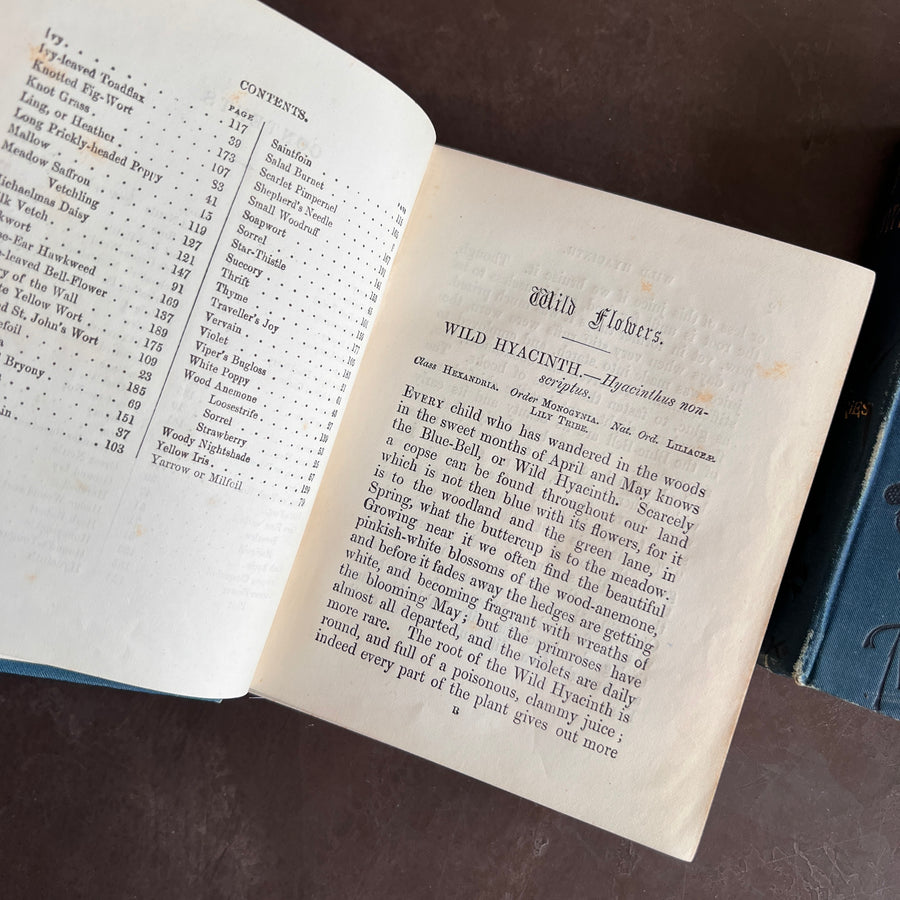 CONTENTS.
PAGE
Ivy
Ivy-leaved Toadflax
Knotted Fig-Wort
Knot Grass
Ling, or Heather
Long Prickly-headed Poppy
Mallow
Meadow Saffron
Vetchling
Michaelmas Daisy
Milk Vetch
Ear Hawkweed
-leaved Bell-Flower
of the Wall
Yellow Wort
St. John's Wort
Bryony
117
39
173
107
83
41
15
119
127
121
147
91
169
137
189
175
109
23
185
69
151
37
103
Saintfoin
Salad Burnet
Scarlet Pimpernel
Shepherd's Needle
Small Woodruff
Soapwort
Sorrel
Star-Thistle
Succory
Thrift
Thyme
Traveller's Joy
Vervain
Violet
Viper's Bugloss
White Poppy
Wood Anemone
Loosestrife
Sorrel
Strawberry
Woody Nightshade
Yellow Iris
Yarrow or Milfoil
Wild Flowers.
WILD HYACINTH.—Hyacinthus non-
scriptus.
Class HEXANDRIA. Order MONOGYNIA. Nat. Ord. LILIACEÆ.
LILY TRIBE.
EVERY child who has wandered in the woods
in the sweet months of April and May knows
the Blue-Bell, or Wild Hyacinth. Scarcely
a copse can be found throughout our land
which is not then blue with its flowers, for it
is to the woodland and the green lane, in
Spring, what the buttercup is to the meadow.
Growing near it we often find the beautiful
pinkish-white blossoms of the wood-anemone,
and before it fades away the hedges are getting
white, and becoming fragrant with wreaths of
the blooming May; but the primroses have
almost all departed, and the violets are daily
more rare. The root of the Wild Hyacinth is
round, and full of a poisonous, clammy juice;
indeed every part of the plant gives out more
B